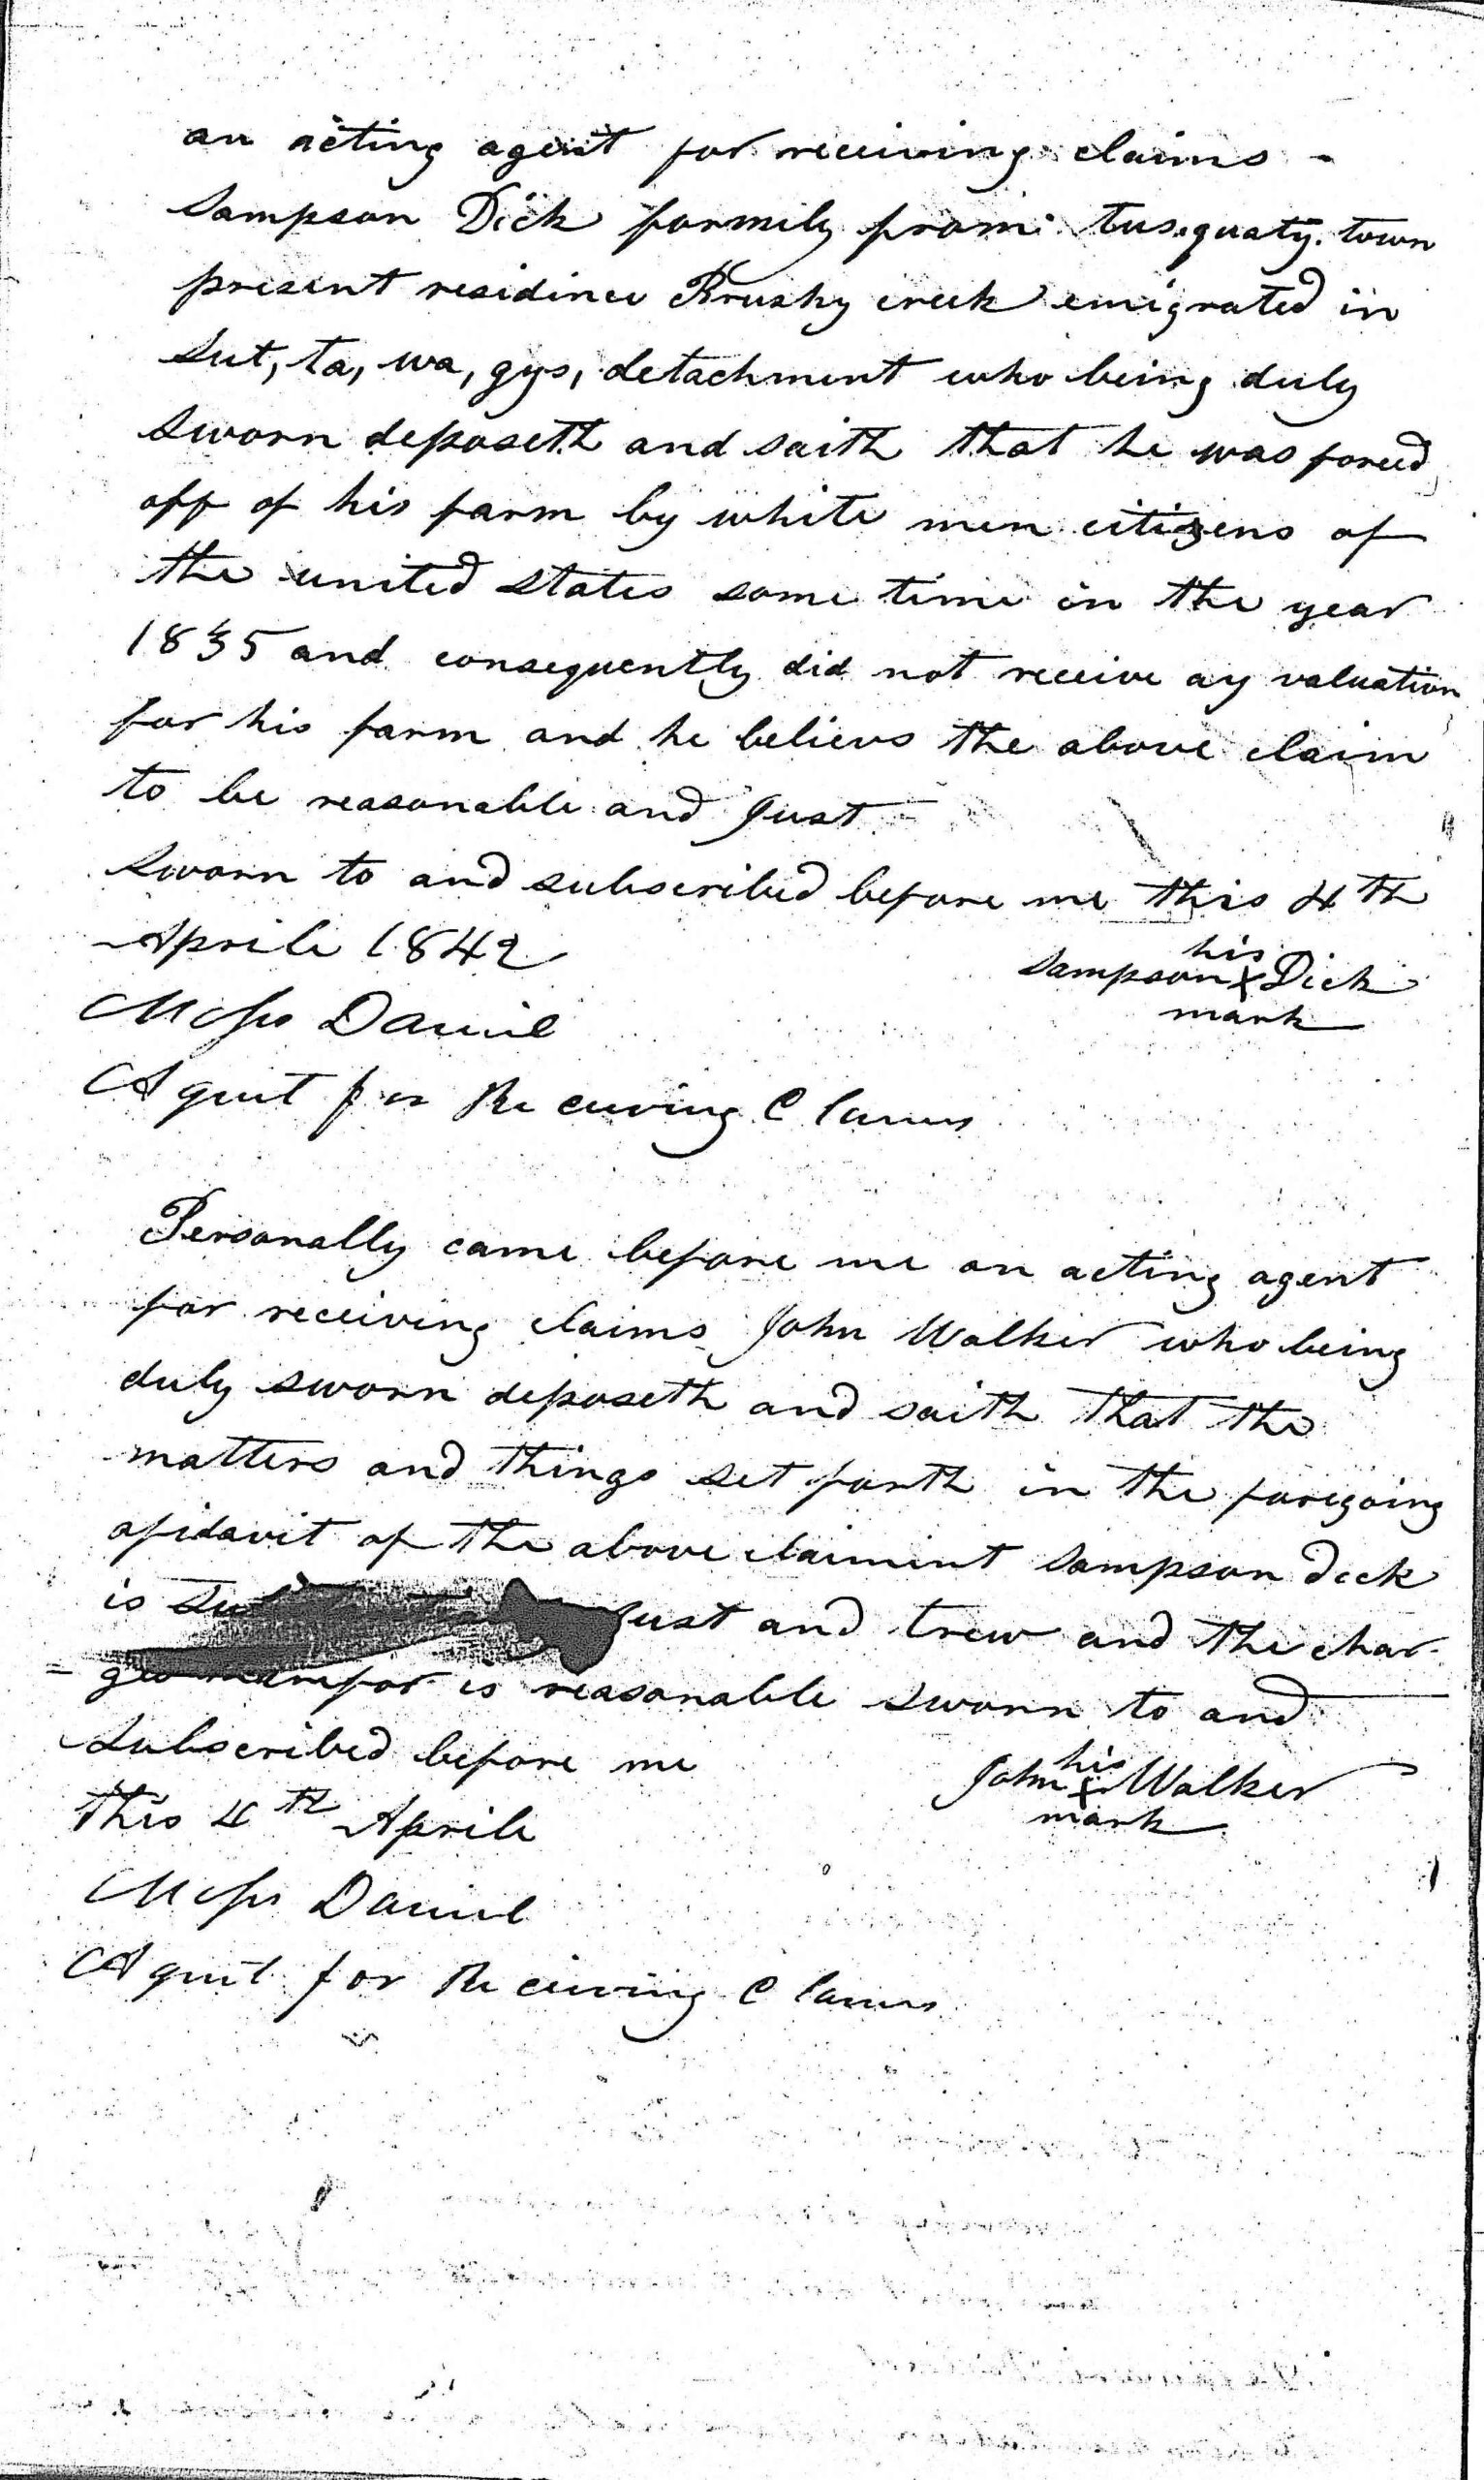 an acting agent for receiving claims -
Sampson Dick formily from tusquaty town
present residince Brushy creek emigrated in
Sut, ta, wa, gys, detachment who being duly
sworn deposeth and saith that he was forced
off of his farm by white men citizens of
the united states some time in the year
1835 and consequently did not receive ay valuation
for his farm and he believs the above claim
to be reasonable and Just
Sworn to and subscribed before me this 4th
Aprile 1842
his
Sampson X Dick
mark
Moses Daniel
Agent for Receiving Claims
Personally came before me an acting agent
for receiving claims John Walker who being
duly sworn deposeth and saith that the
matters and things set forth in the foregoing
afidavit of the above claimint Sampson dick
is Just and trew and the char
= is reasonable Sworn to and
Subscribed before me
his
John X Walker
mark
this 4th Aprile
Moses Daniel
Agent for Receiving Claims